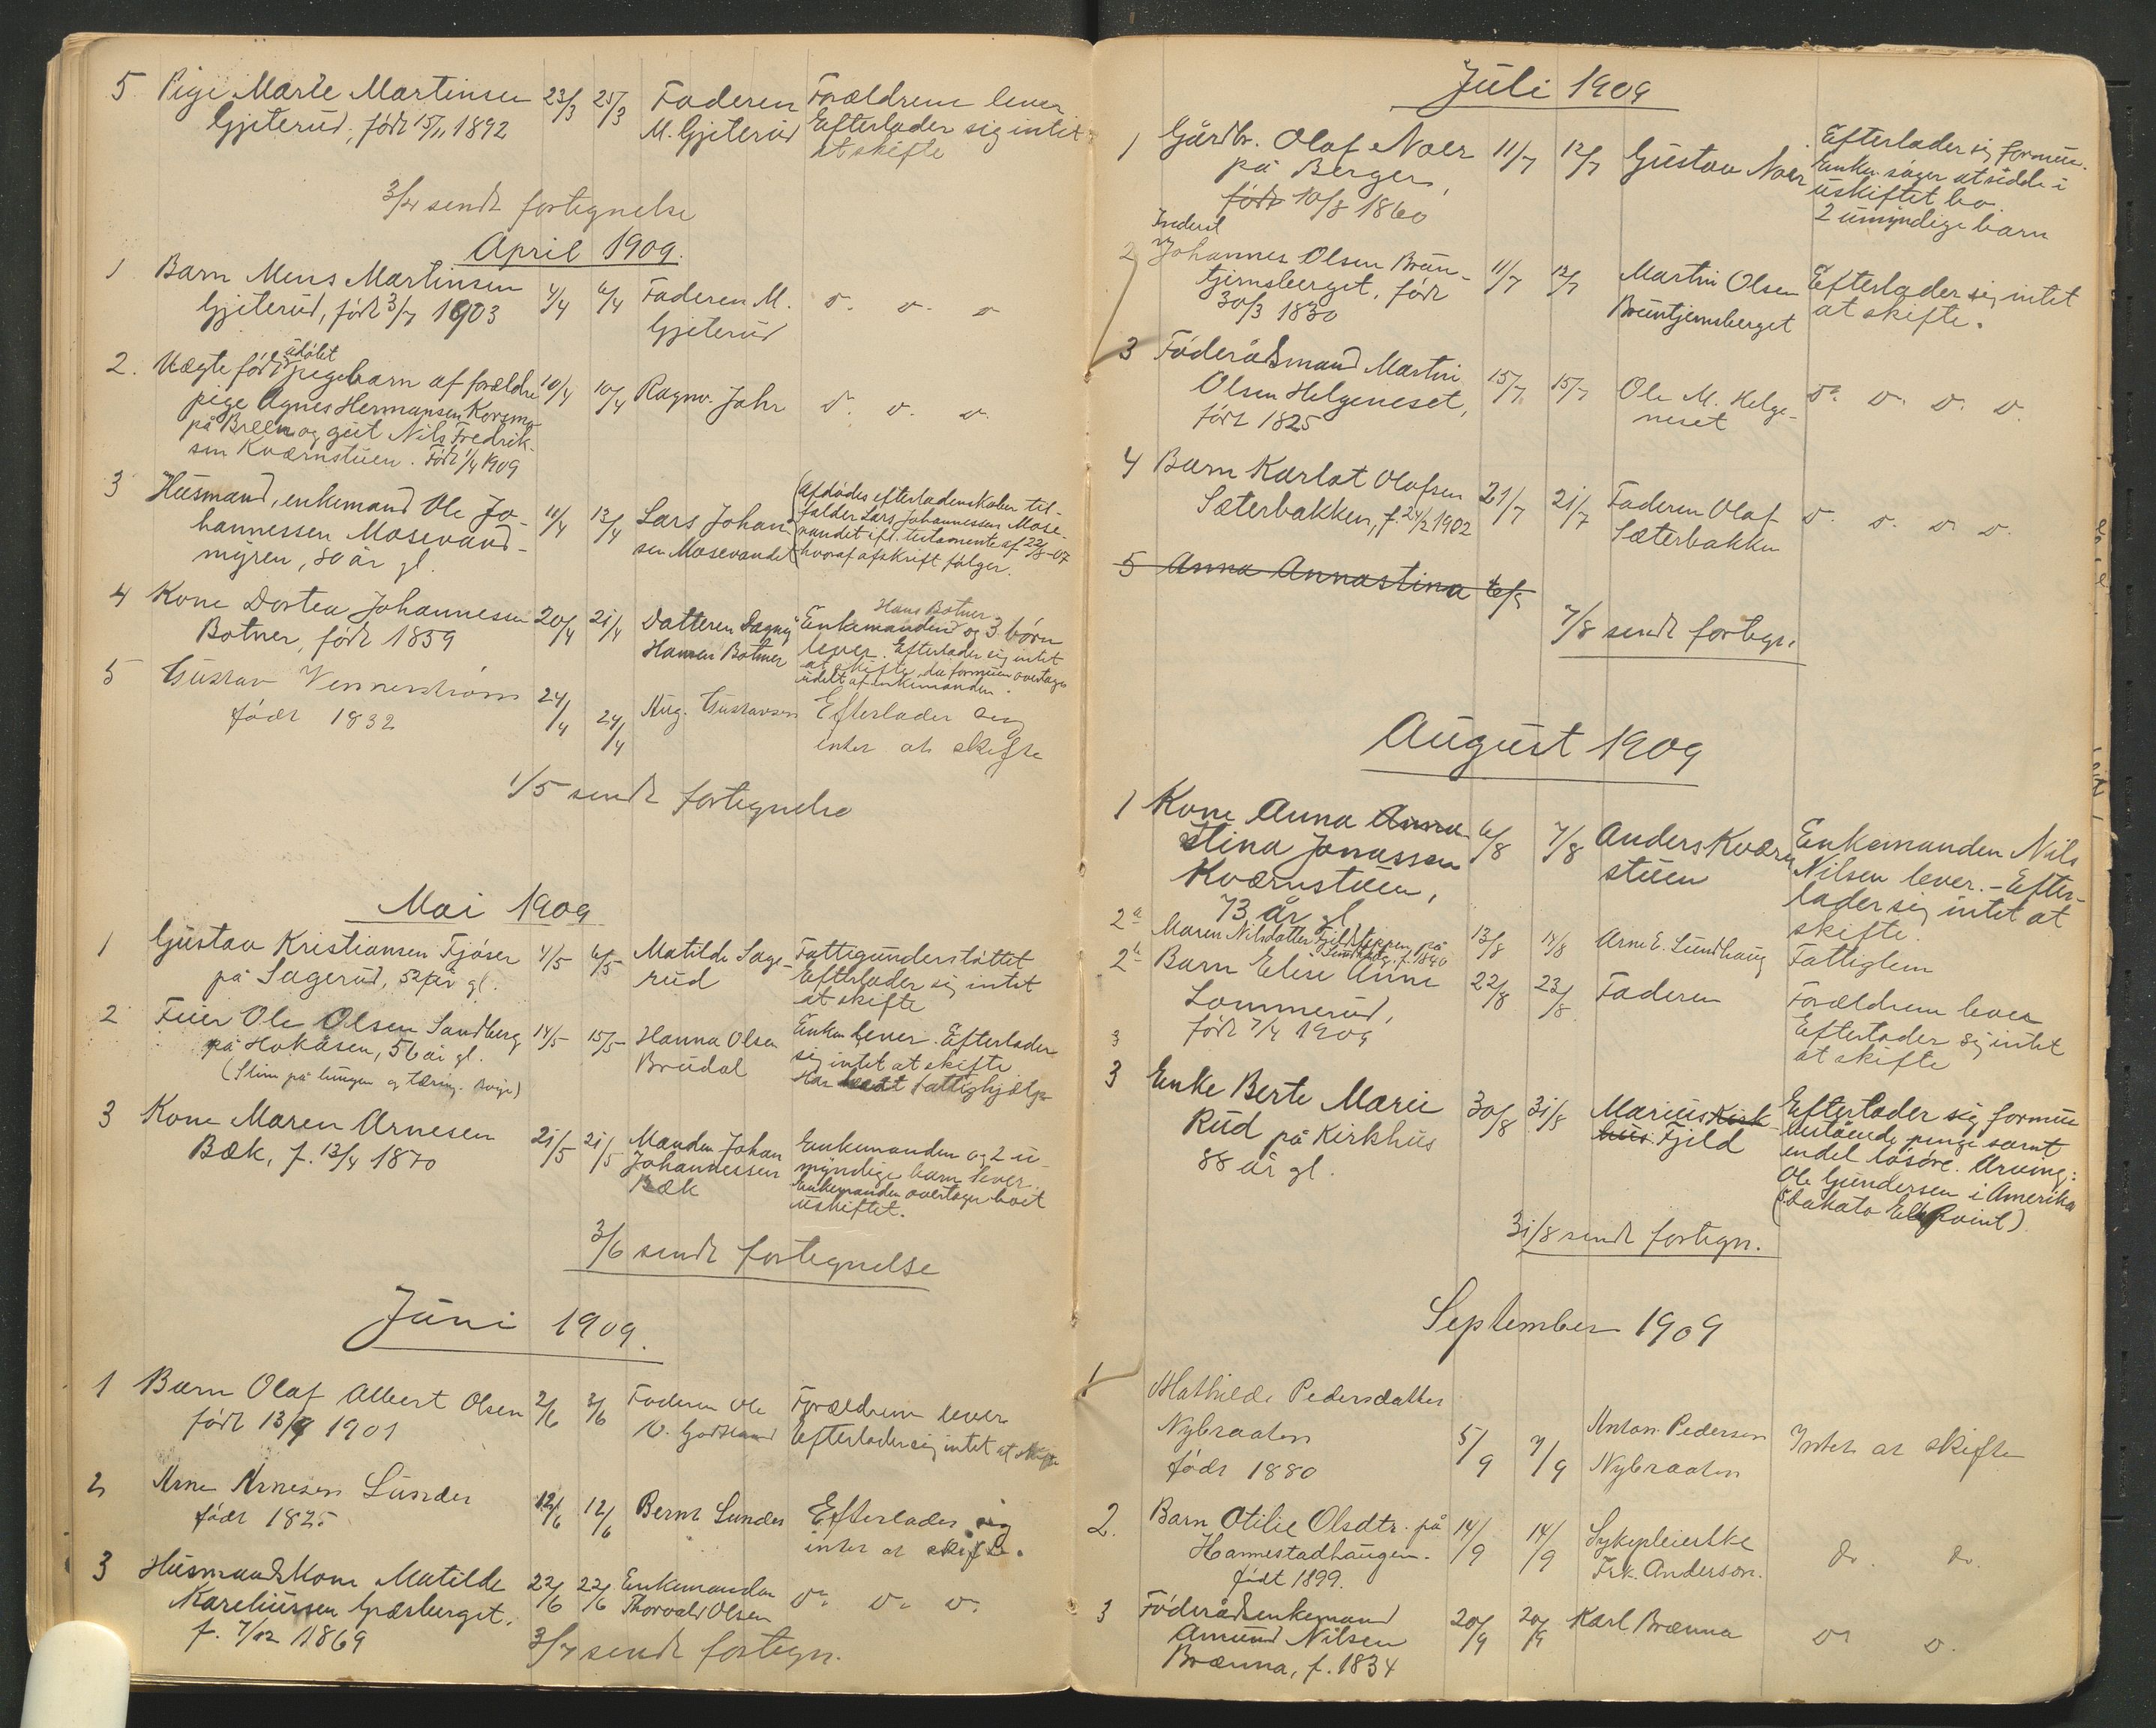 5 Pige Marte Martinsen 23/3 25/3 Faderen Forældrene lever
Gjiterud, født 15/11 1892 M. Gjiterud Efterlader sig intet
at skifte
3/4 sendt fortegnelse
April 1909.
1 Barn Mens Martinsen 4/4 6/4 Faderen M. D. D. D
Gjiterud, født 3/7 1903 Gjiterud
2. Uægte født udøbt pigebarn af forældre 10/4 10/4 Ragnv. Jahr D. D. D.
pige Agnes Hermansen Korsmo
på Breen og gut Nils Fredrik-
sen Kværnstuen. Født 1/4 1909
3 Husmand, enkemand Ole Jo- 11/4 13/4 Lars Johan- (Afdødes efterladenskaber til-
hannessen Mosevand- sen Mosevandet falder Lars Johannessen Mose-
myren, 80 år gl. vandet ifl. testamente af 22/8-07
hvoraf afskrift følger.
4 Kone Dortea Johannessen 20/4 21/4 Datteren Dagny Enkemanden Hans Botner og 3 børn
Botner, født 1859 Hansen Botner lever. Efterlader sig intet
at skifte, da formuen overtages
udelt af enkemanden.
5 Gustav Vennerstrøm 24/4 24/4 Aug. Gustavsen Efterlader sig
født 1832 intet at skifte
1/5 sendt fortegnelse
Mai 1909
1 Gustav Kristiansen Fjøser 4/5 6/5 Matilde Sage- Fattigunderstøttet
på Sagerud, 52 år gl. rud Efterlader sig intet
at skifte
2 Feier Ole Olsen Sandberg 14/5 15/5 Hanna Olsen Enken lever. Efterlader
på Hokåsen, 56 år gl. Brudal sig intet at skifte
(Slim på lungen og tæring. svige) Har havt fattighjælp
3 Kone Maren Arnesen 21/5 21/5 Manden Johan Enkemanden og 2 u-
Bæk, f. 13/4 1870 Johannessen myndige barn lever.
Bæk Enkemanden overtager boet
uskiftet.
3/6 sendt fortegnelse
Juni 1909.
1 Barn Olaf Albert Olsen 2/6 3/6 Faderen Ole Forældrene lever
født 13/9 1901 Efterlader sig intet at skifte
2 Arne Arnesen Lunder 12/6 12/6 Bernt Lunder Efterlader sig
født 1825 intet at skifte.
3 Husmandskone Matilde 22/6 22/6 Enkemanden D. D. D.
Kareliussen Græsberget. Thorvald Olsen
f. 7/12 1869
3/7 sendt fortegn.
Juli 1909
1 Gårdbr. Olaf Noer 11/7 12/7 Gustav Noer Efterlader sig formue.
på Berger, Enken søger at sidde i
født 10/8 1860 uskiftet bo.
2 umyndige barn
Inderst
2 Johannes Olsen Brun- 11/7 12/7 Martin Olsen Efterlader sig intet
tjernsberget, født Bruntjernsberget at skifte.
30/3 1830
3 Føderådsmand Martin 15/7 15/7 Ole M. Helge- D. D. D. D.
Olsen Helgeneset, neset
født 1825
4 Barn Karlot Olafsen 21/7 21/7 Faderen Olaf D. D. D. D.
Sæterbakken, f. 24/2 1902 Sæterbakken
5 Anna Annastina 6/8
7/8 sendt fortegn.
August 1909
1 Kone Anna Anna 6/8 7/8 Anders Kværn Enkemanden Nils
Stina Jonassen stuen Nilsen lever. - Efter-
Kværnstuen, lader sig intet at
73 år gl. skifte.
2a Maren Nilsdatter Fjeldteppen på 13/8 14/8 Arne E. Sundhaug Fattiglem
Sundhaug. f. 1840
2b Barn Elise Anne 22/8 23/8 Faderen Forældrene lever
Lommerud, Efterlader sig intet
3 født 7/4 1909 at skifte
3 Enke Berte Marie 30/8 31/8 Marius Kirk- Efterlader sig formue
Rud på Kirkhus hus Fjeld bestående penge samt
88 år gl. endel løsøre. Arving:
Ole Gundersen i Amerika
(S. Dakato Elk Point)
31/8 sendt fortegn.
September 1909
1 Mathilde Pedersdatter
Nybraaten 5/9 7/9 Anton Pedersen Intet at skifte
født 1880 Nybraaten
2. Barn Otilie Olsdtr. på 14/9 14/9 Sykepleierske Do. Do.
Hammestadhaugen. Frk. Anderson.
født 1899.
3 Føderådsenkemand 20/9 20/9 Karl Brænna D. D.
Amund Nilsen
Brænna, f. 1834